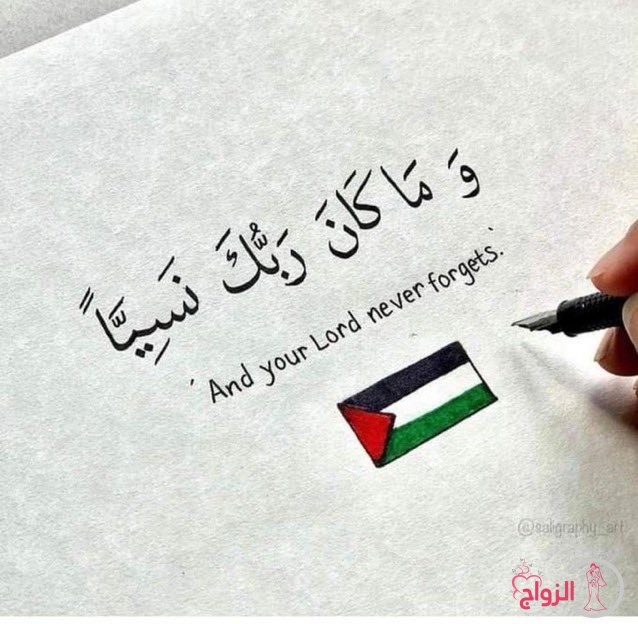 وَ مَا كَانَ رَبُّكَ نَسِيَّاً
'And your Lord never forgets.'
@saligraphy_art
الزواج